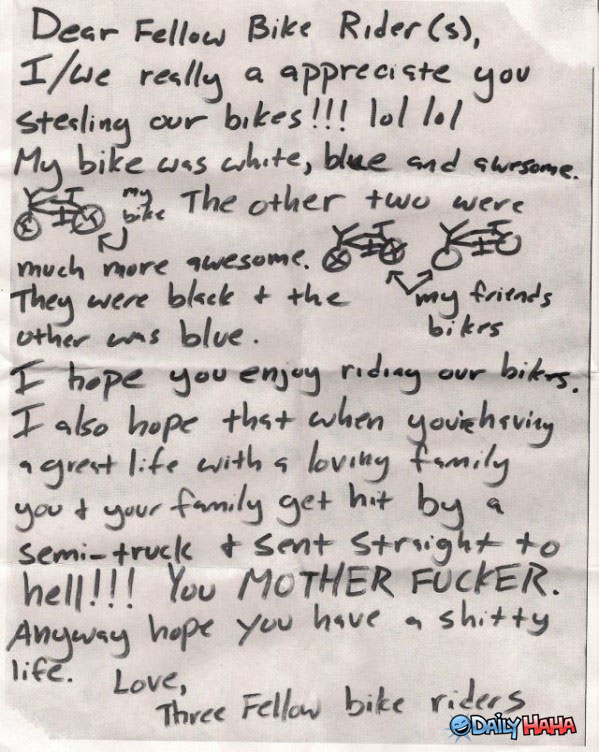 Dear Fellow Bike Rider(s),
I/we really a appreciate you
stealing our bikes!!! lol lol
My bike was white, blue and awesome.
my
bike The other two were
much more awesome.
They were black + the
my friends
bikes
other was blue.
I hope you enjoy riding our bikes.
I also hope that when you're having
a great life with a loving family
you & your family get hit by a
semi-truck & sent straight to
hell!!! You MOTHER FUCKER.
Anyway hope you have a shitty
life.
Love,
Three Fellow bike riders
DAILY HAHA